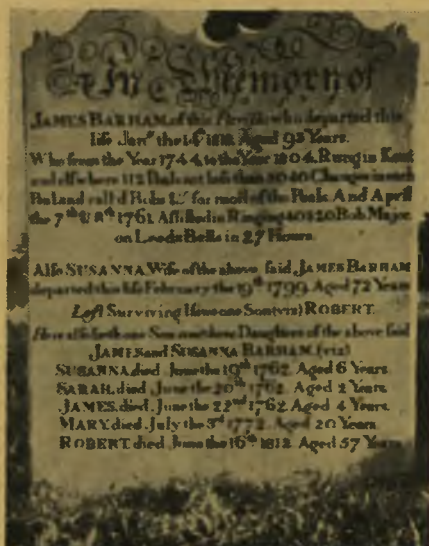 In Memory of
JAMES BARHAM, of this who departed this
life Janry the 14th 1818 Aged 93 Years.
Who from the Year 1744, to the Year 1804, Rung in Kent
and elsewhere 112 Peals not less than 5040 Changes in each
Peal and call'd Bobs &c. for most of the Peals. And April
the 7th & 8th 1761 Assisted in Ringing 40320 Bob Major
on Leeds Bells in 27 Hours.
Also SUSANNA Wife of the above said JAMES BARHAM
departed this life February the 19th 1799 Aged 72 Years
Left Surviving Issue one Son (viz) ROBERT.
Here also Daughters of the above said
JAMES and SUSANNA BARHAM. (viz)
SUSANNA died June the 19th 1762 Aged 6 Years.
SARAH, died June the 20th 1762 Aged 2 Years
JAMES, died June the 22nd 1762 Aged 4 Years.
MARY, died July the 3rd 1772 Aged 20 Years.
ROBERT died June the 16th 1812 Aged 57 Years